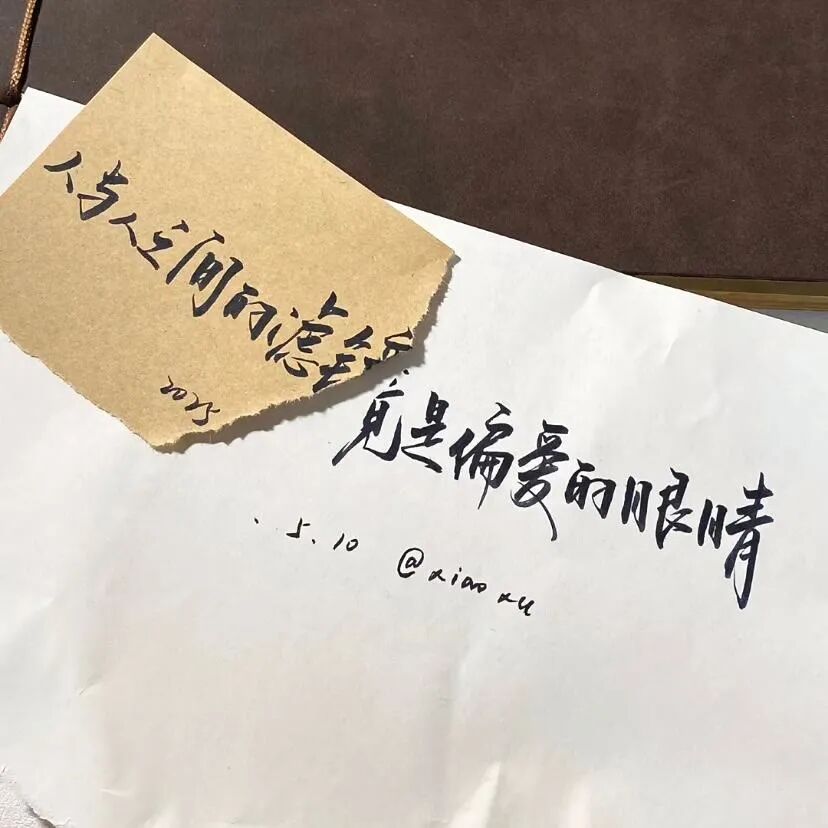 人与人之间的滤镜
竟是偏爱的眼睛
2025
. 5.10 @xiaoxu